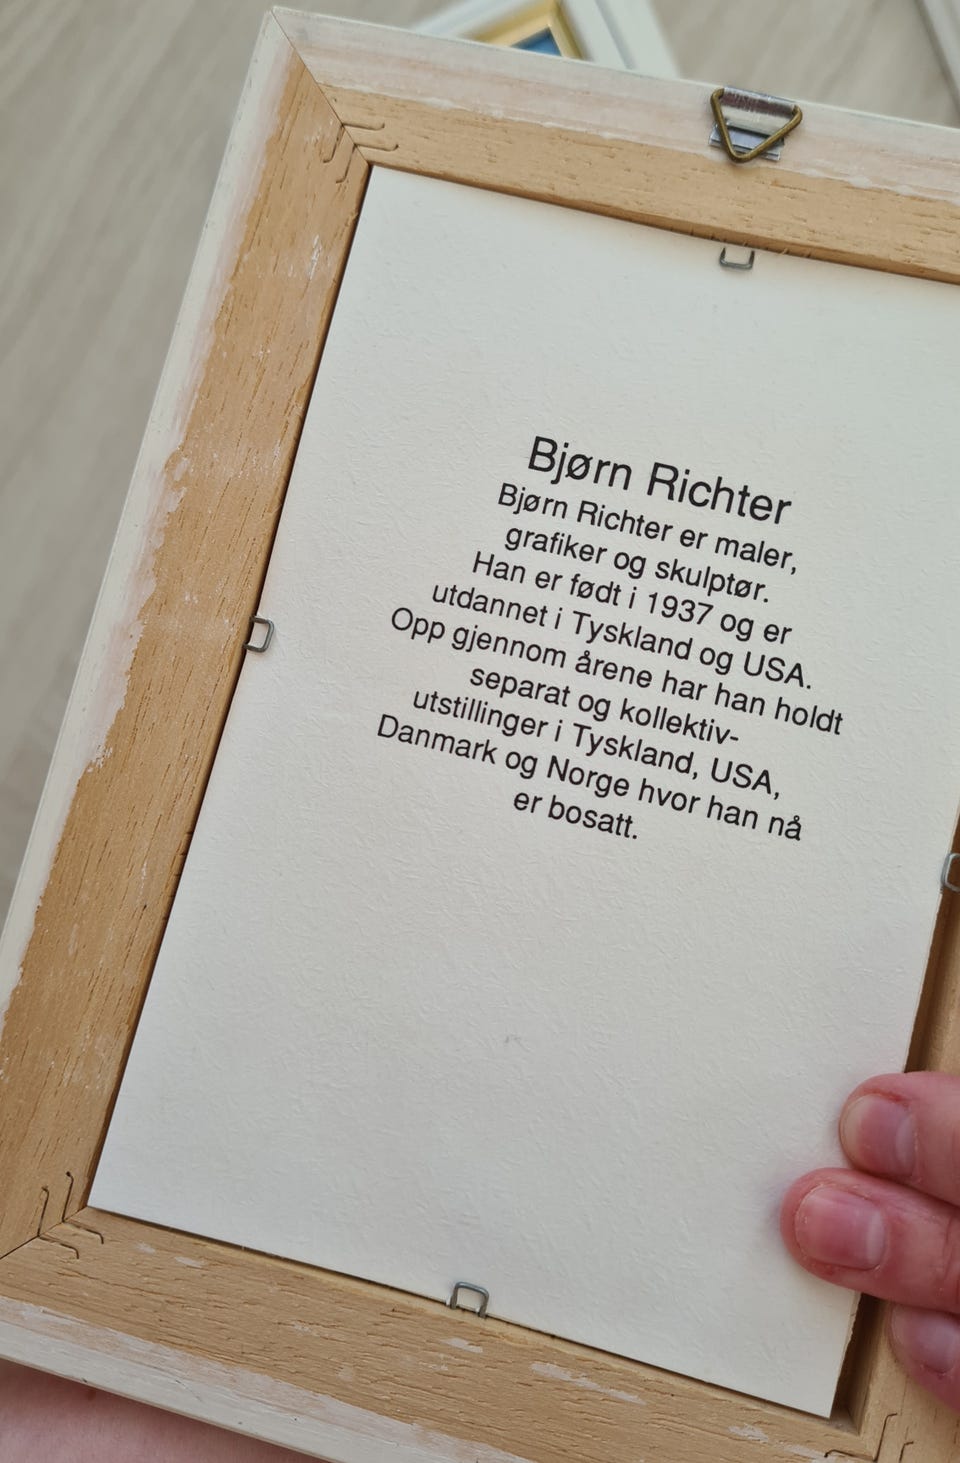 Bjørn Richter
Bjørn Richter er maler,
grafiker og skulptør.
Han er født i 1937 og er
utdannet i Tyskland og USA.
Opp gjennom årene har han holdt
separat og kollektiv-
utstillinger i Tyskland, USA,
Danmark og Norge hvor han nå
er bosatt.